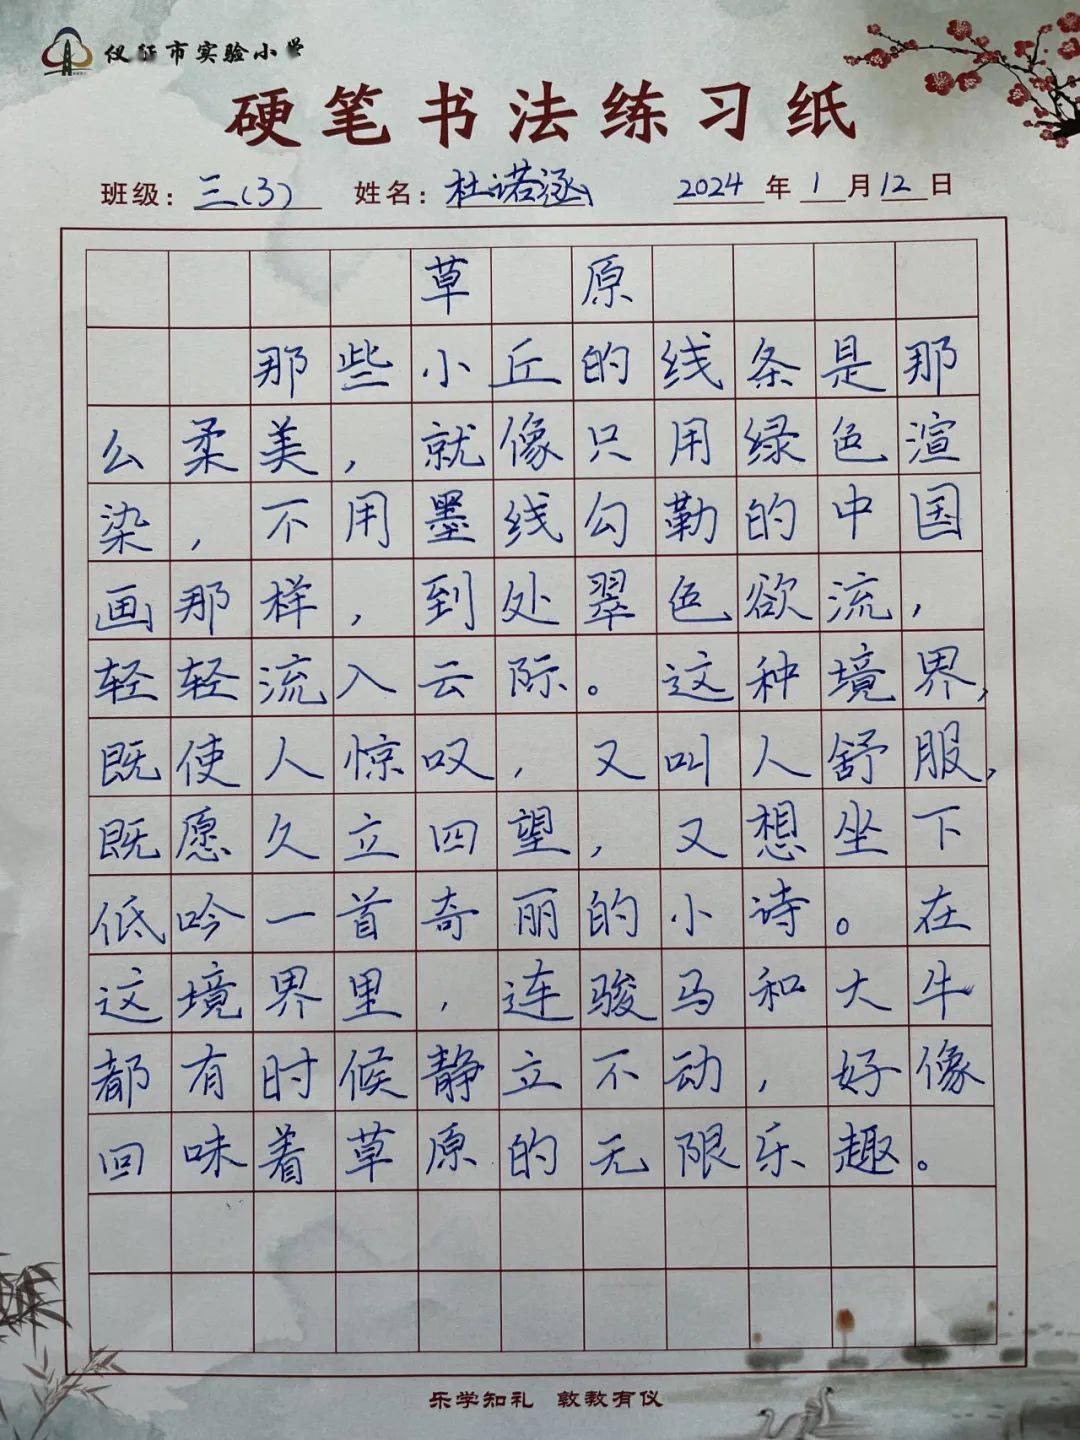 仪征市实验小学
硬笔书法练习纸
班级：三(3) 姓名：杜诺涵 2024年1月12日
草原
那些小丘的线条是那
么柔美，就像只用绿色渲
染，不用墨线勾勒的中国
画那样，到处翠色欲流，
轻轻流入云际。这种境界，
既使人惊叹，又叫人舒服，
既愿久立四望，又想坐下
低吟一首奇丽的小诗。在
这境界里，连骏马和大牛
都有时候静立不动，好像
回味着草原的无限乐趣。
乐学知礼 敦教有仪